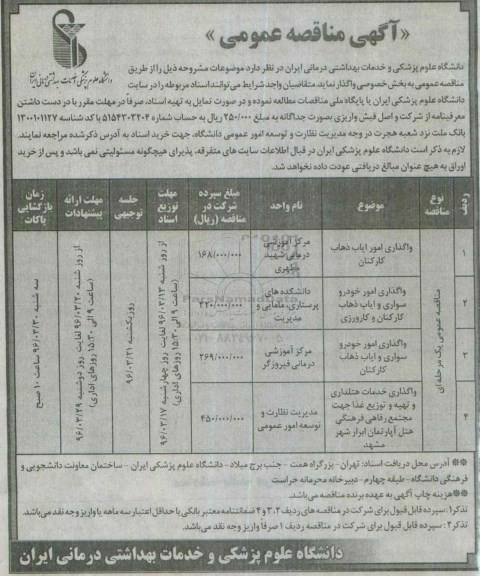 «آگهی مناقصه عمومی»
دانشگاه علوم پزشکی و خدمات بهداشتی درمانی ایران
دانشگاه علوم پزشکی و خدمات بهداشتی درمانی ایران در نظر دارد موضوعات مشروحه ذیل را از طریق
مناقصه عمومی به بخش خصوصی واگذار نماید. متقاضیان واجد شرایط می توانند اسناد مربوطه را در سایت
دانشگاه علوم پزشکی ایران یا پایگاه ملی مناقصات مطالعه نموده و در صورت تمایل به تهیه اسناد، صرفاً در مهلت مقرر با در دست داشتن
معرفینامه از شرکت و اصل فیش واریزی بصورت جداگانه به مبلغ ۲۵۰/۰۰۰ ریال به حساب شماره ۵۱۵۴۳۰۳۲۰۴ با کد شناسه ۱۳۰۰۱۰۱۱۲۷
بانک ملت نزد شعبه هجرت در وجه مدیریت نظارت و توسعه امور عمومی دانشگاه، جهت خرید اسناد به آدرس ذکر شده مراجعه نمایند.
لازم به ذکر است دانشگاه علوم پزشکی ایران در قبال اطلاعات سایت های متفرقه، پذیرای هیچگونه مسئولیتی نمی باشد و پس از خرید
اوراق به هیچ عنوان مبالغ دریافتی عودت داده نخواهد شد.
ردیف
نوع مناقصه
موضوع
نام واحد
مبلغ سپرده شرکت در مناقصه (ریال)
مهلت توزیع اسناد
جلسه توجیهی
مهلت ارائه پیشنهادات
زمان بازگشایی پاکات
مناقصه عمومی یک مرحله ای
۱
واگذاری امور ایاب ذهاب
کارکنان
مرکز آموزشی
درمانی شهید
مطهری
۱۶۸/۰۰۰/۰۰۰
۲
واگذاری امور خودرو
سواری و ایاب ذهاب
کارکنان و کارورزی
دانشکده های
پرستاری، مامایی و
مدیریت
۲۲۰/۰۰۰/۰۰۰
۳
واگذاری امور خودرو
سواری و ایاب ذهاب
کارکنان
مرکز آموزشی
درمانی فیروزگر
۲۶۹/۰۰۰/۰۰۰
۴
واگذاری خدمات هتلداری
و تهیه و توزیع غذا جهت
مجتمع رفاهی فرهنگی
هتل آپارتمان ابرار شهر
مشهد
مدیریت نظارت و
توسعه امور عمومی
۴۵۰/۰۰۰/۰۰۰
از روز شنبه ۹۶/۰۳/۱۳ لغایت روز چهارشنبه ۹۶/۰۳/۱۷
(ساعت ۹ الی ۱۵:۳۰ روزهای اداری)
روز یکشنبه ۹۶/۰۳/۲۱
از روز شنبه ۹۶/۰۳/۲۰ لغایت روز دوشنبه ۹۶/۰۳/۲۹
(ساعت ۹ الی ۱۵:۳۰ روزهای اداری)
سه شنبه ۹۶/۰۳/۳۰ ساعت ۱۰ صبح
** آدرس محل دریافت اسناد: تهران - بزرگراه همت - جنب برج میلاد - دانشگاه علوم پزشکی ایران - ساختمان معاونت دانشجویی و
فرهنگی دانشگاه - طبقه چهارم - دبیرخانه محرمانه حراست
** هزینه چاپ آگهی به عهده برنده مناقصه می باشد.
تذکر۱: سپرده قابل قبول برای شرکت در مناقصه های ردیف ۲، ۳ و ۴ ضمانتنامه معتبر بانکی با حداقل اعتبار سه ماهه یا واریز وجه نقد می باشد.
تذکر۲: سپرده قابل قبول برای شرکت در مناقصه ردیف ۱ صرفاً واریز وجه نقد می باشد.
دانشگاه علوم پزشکی و خدمات بهداشتی درمانی ایران